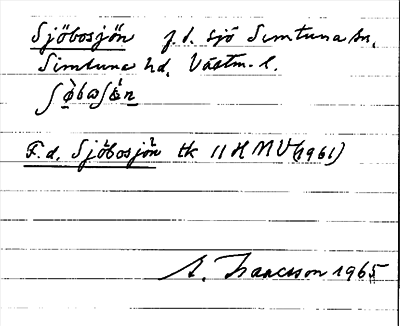 Sjöbosjön f.d. sjö Simtuna sn,
Simtuna hd, Västm. l.
F.d. Sjöbosjön tk 11 H NV (1961)
A. Isaacsson 1965